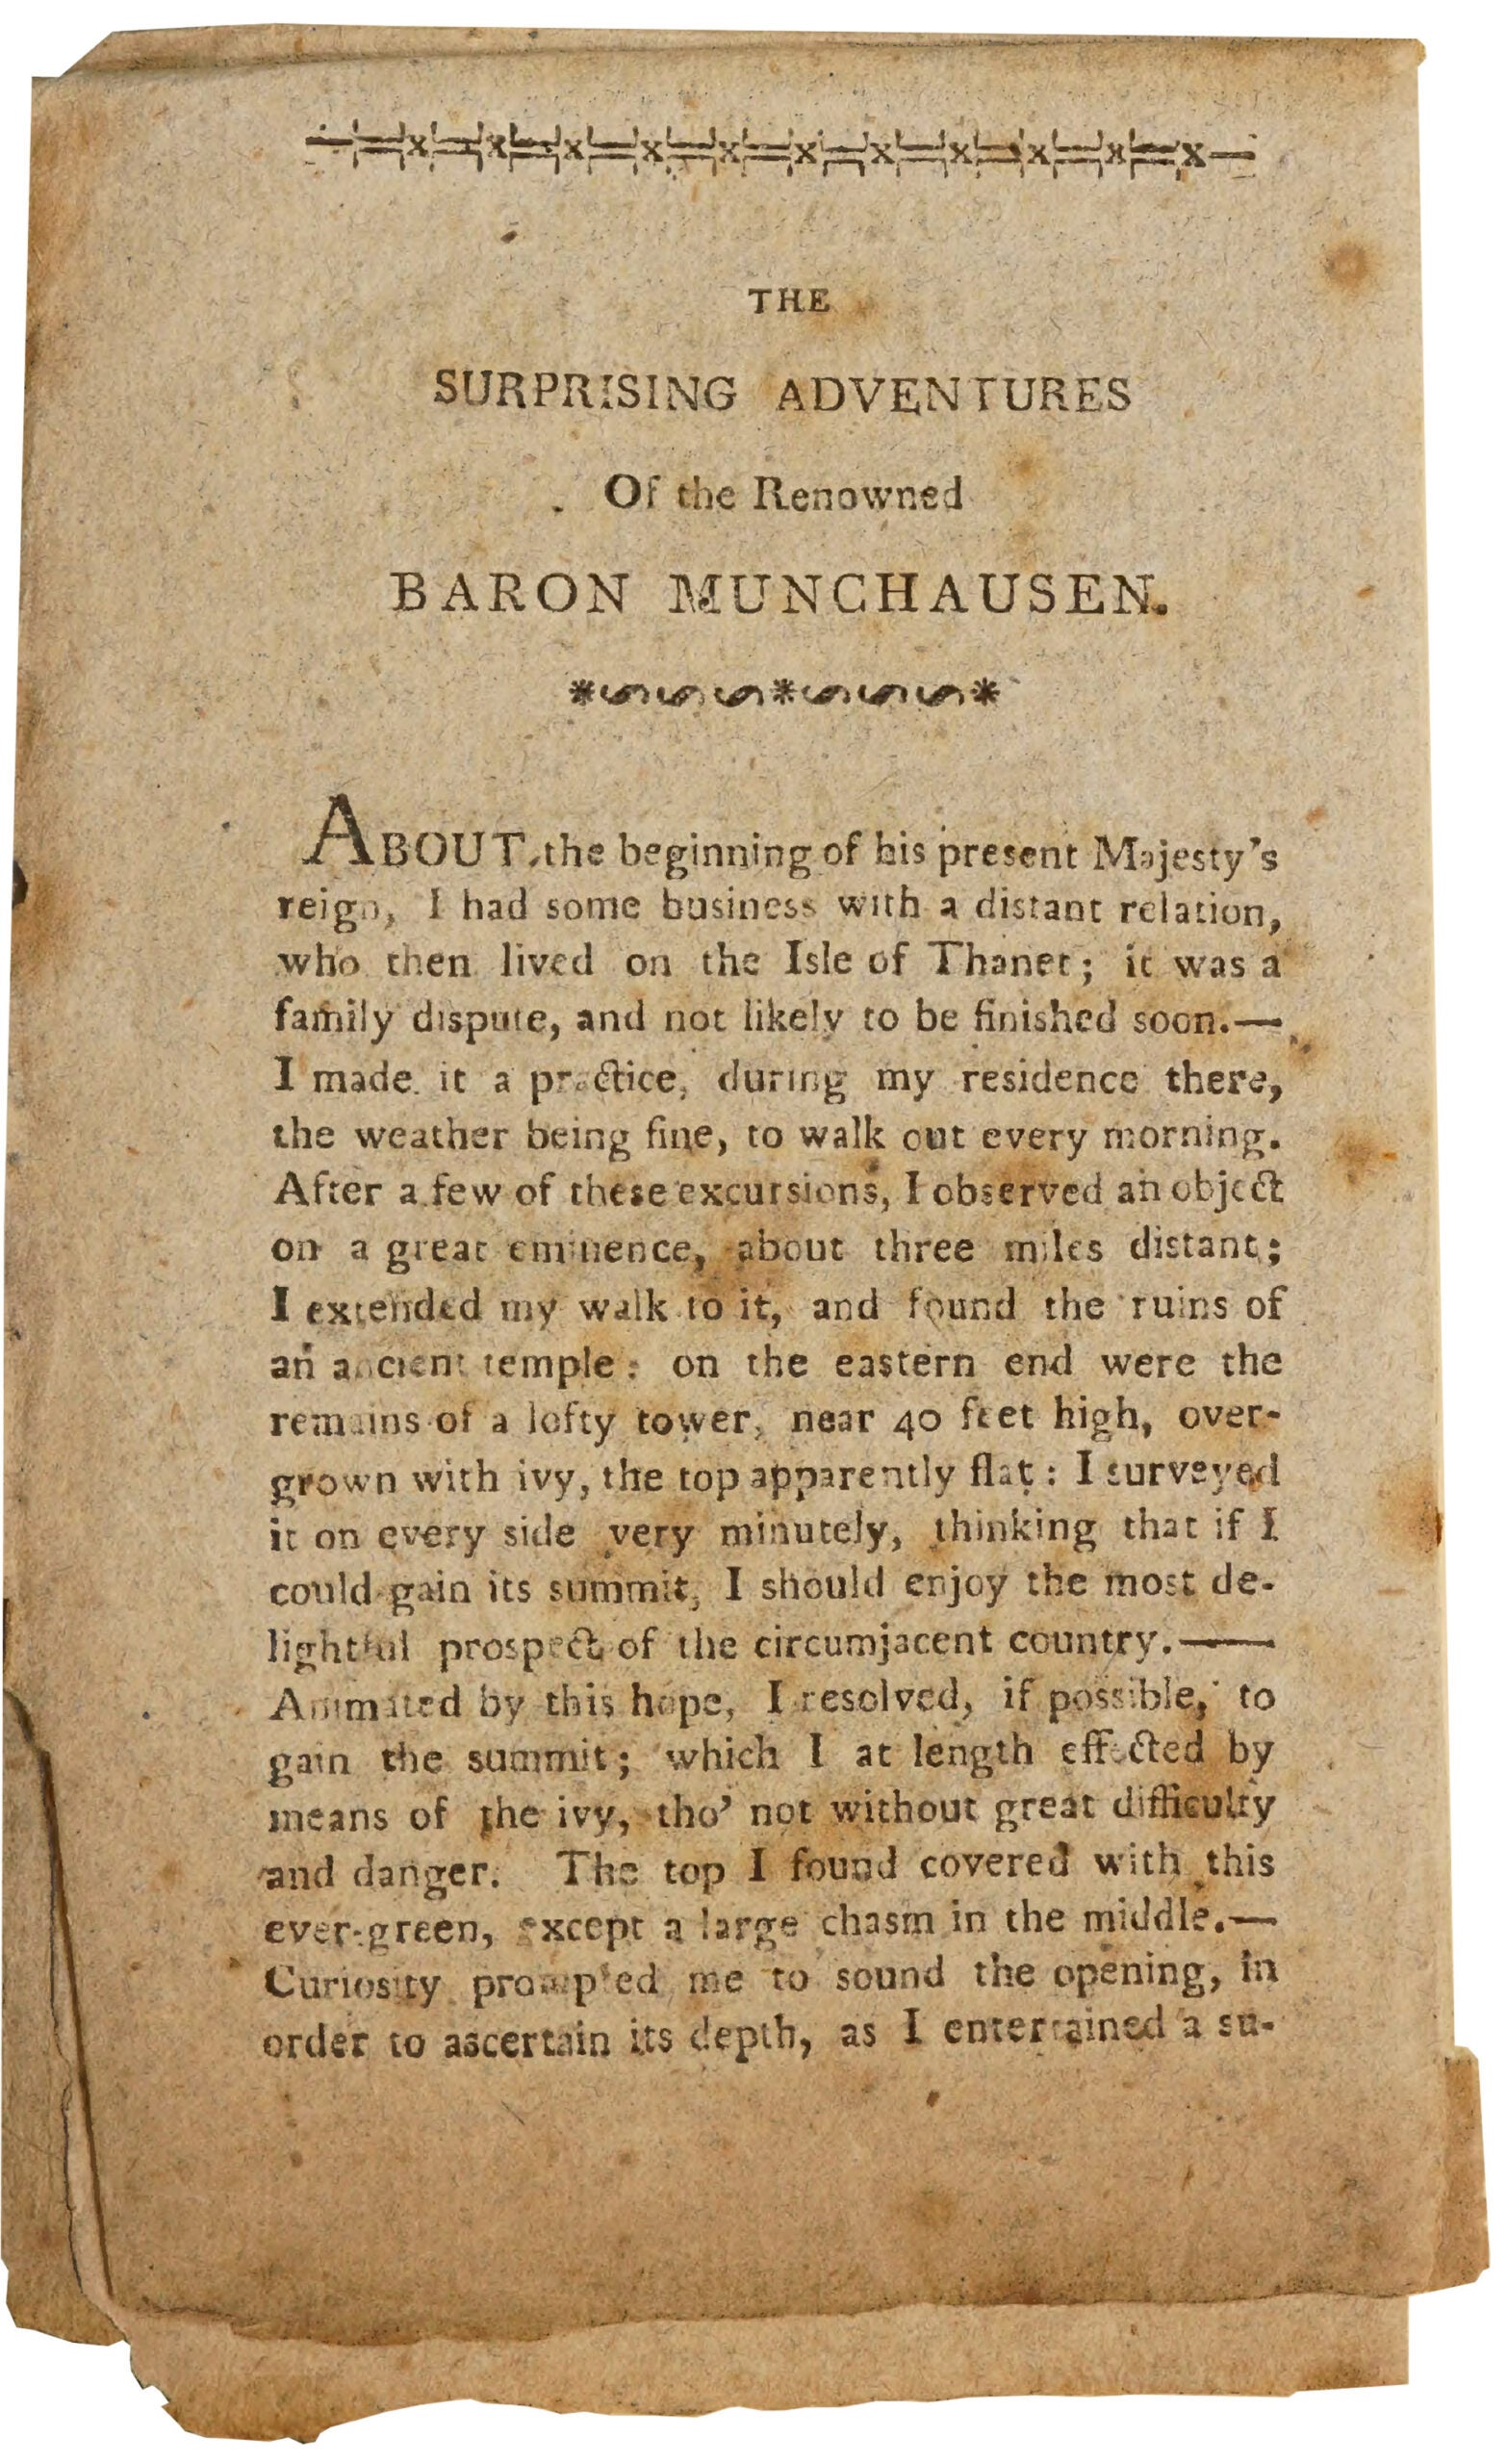 THE
SURPRISING ADVENTURES
Of the Renowned
BARON MUNCHAUSEN.
ABOUT the beginning of his present Majesty's
reign, I had some business with a distant relation,
who then lived on the Isle of Thanet; it was a
family dispute, and not likely to be finished soon.—
I made it a practice, during my residence there,
the weather being fine, to walk out every morning.
After a few of these excursions, I observed an object
on a great eminence, about three miles distant;
I extended my walk to it, and found the ruins of
an ancient temple: on the eastern end were the
remains of a lofty tower, near 40 feet high, over-
grown with ivy, the top apparently flat: I surveyed
it on every side very minutely, thinking that if I
could gain its summit, I should enjoy the most de-
lightful prospect of the circumjacent country.——
Animated by this hope, I resolved, if possible, to
gain the summit; which I at length effected by
means of the ivy, tho' not without great difficulty
and danger. The top I found covered with this
ever-green, except a large chasm in the middle.—
Curiosity prompted me to sound the opening, in
order to ascertain its depth, as I entertained a su-